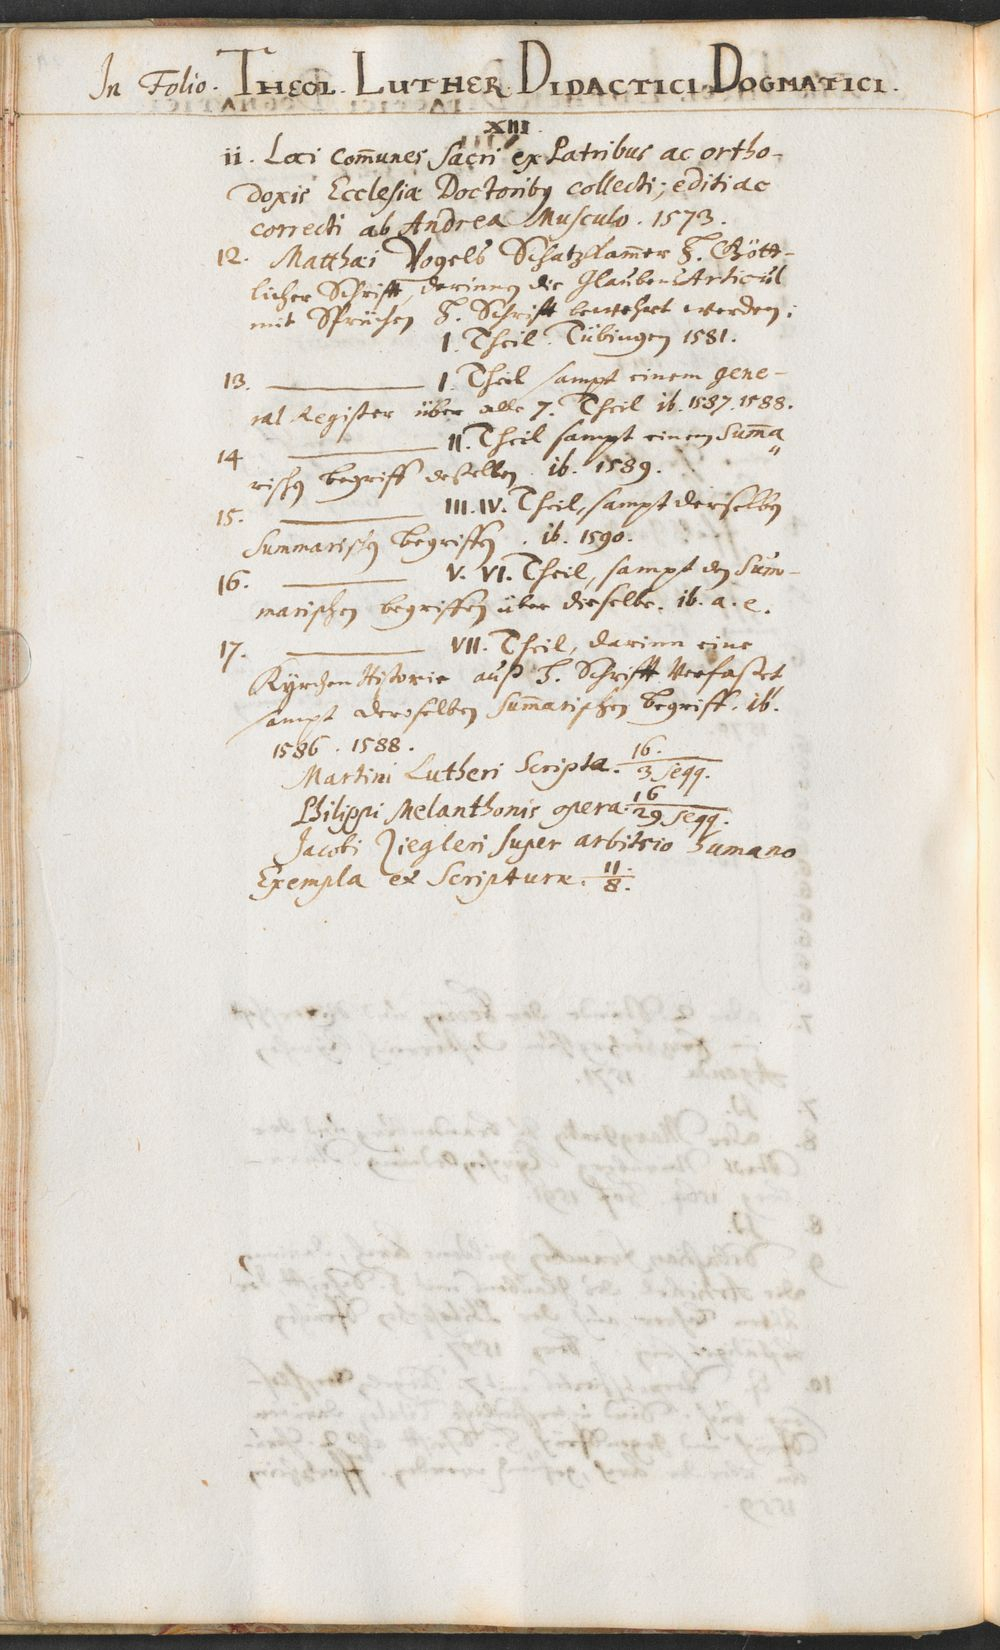 In Folio. THEOL. LUTHER. DIDACTICI. DOGMATICI.
XIII.
ii. Loci Com̄unes Sacri ex Patribus ac ortho-
doxis Ecclesiæ Doctoribus collecti; editi ac
correcti ab Andrea Musculo. 1573.
12. Matthæi Vogels Schatzkam̄er H. Gött-
licher Schrifft, darinnen die Glaubens Articul
mit Sprüchen H. Schrifft bewehrt werden;
I. Theil. Tübingen 1581.
13. ——— I. Theil sampt einem gene-
ral Register über alle 7. Theil ib. 1587. 1588.
14 ——— II. Theil sampt einem Sum̄a
rischen begriff desselben. ib. 1589.
15. ——— III. IV. Theil, sampt derselben
Summarischen begriffen. ib. 1590.
16. ——— V. VI. Theil, sampt den Sum-
marischen begriffen über dieselbe. ib. a. e.
17. ——— VII. Theil, darinn eine
Kyrchen Historie auß H. Schrifft verfasset
sampt derselben Sum̄arischen begriff. ib.
1586. 1588.
Martini Lutheri Scripta. 16./3 seqq.
Philippi Melanthonis opera. 16/29 seqq.
Jacobi Ziegleri super arbitrio humano
Exempla ex Scriptura. 11./8.